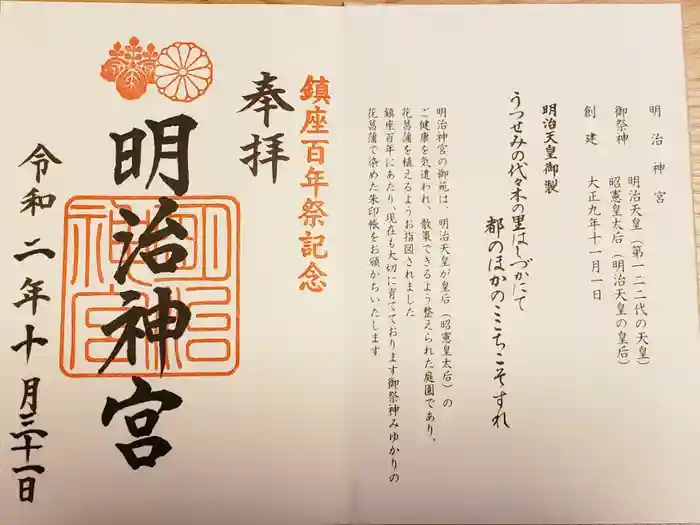 明治神宮
御祭神 明治天皇（第一二二代の天皇）
昭憲皇太后（明治天皇の皇后）
創建 大正九年十一月一日
明治天皇御製
うつせみの代々木の里はしづかにて
都のほかのここちこそすれ
明治神宮の御苑は、明治天皇が皇后（昭憲皇太后）の
ご健康を気遣われ、散策できるよう整えられた庭園であり、
花菖蒲を植えるようお指図されました
鎮座百年にあたり、現在も大切に育てております御祭神みゆかりの
花菖蒲で染めた朱印帳をお頒かちいたします
鎮座百年祭記念
奉拝
明治神宮
明治
神宮
令和二年十月三十一日